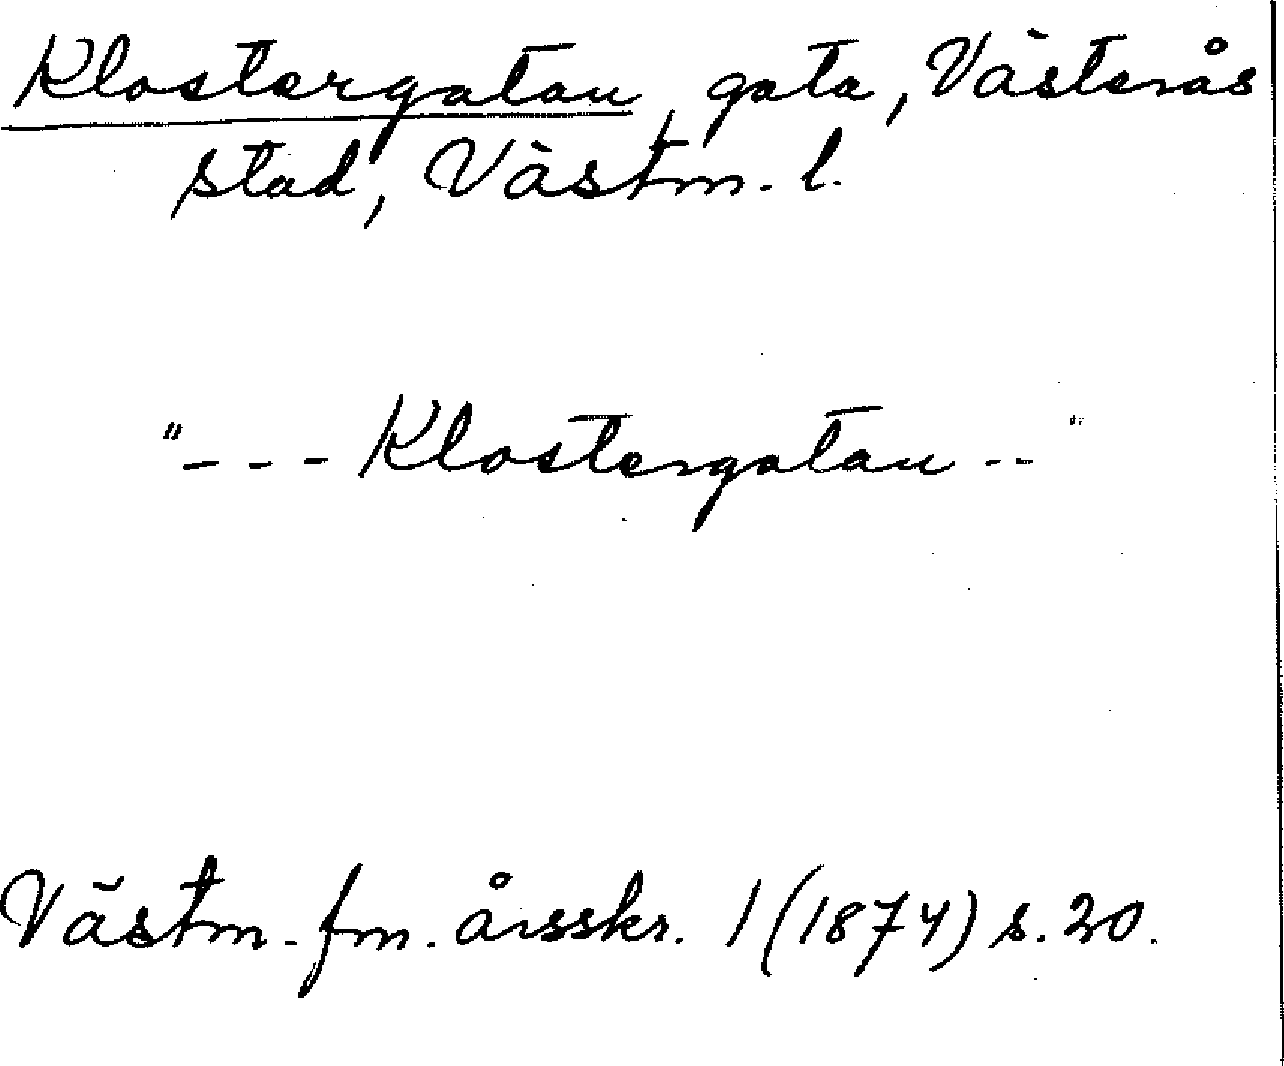 Klostergatan, gata, Västerås
stad, Västm. l.
"--- Klostergatan --"
Västm. fm. årsskr. 1 (1874) s. 20.